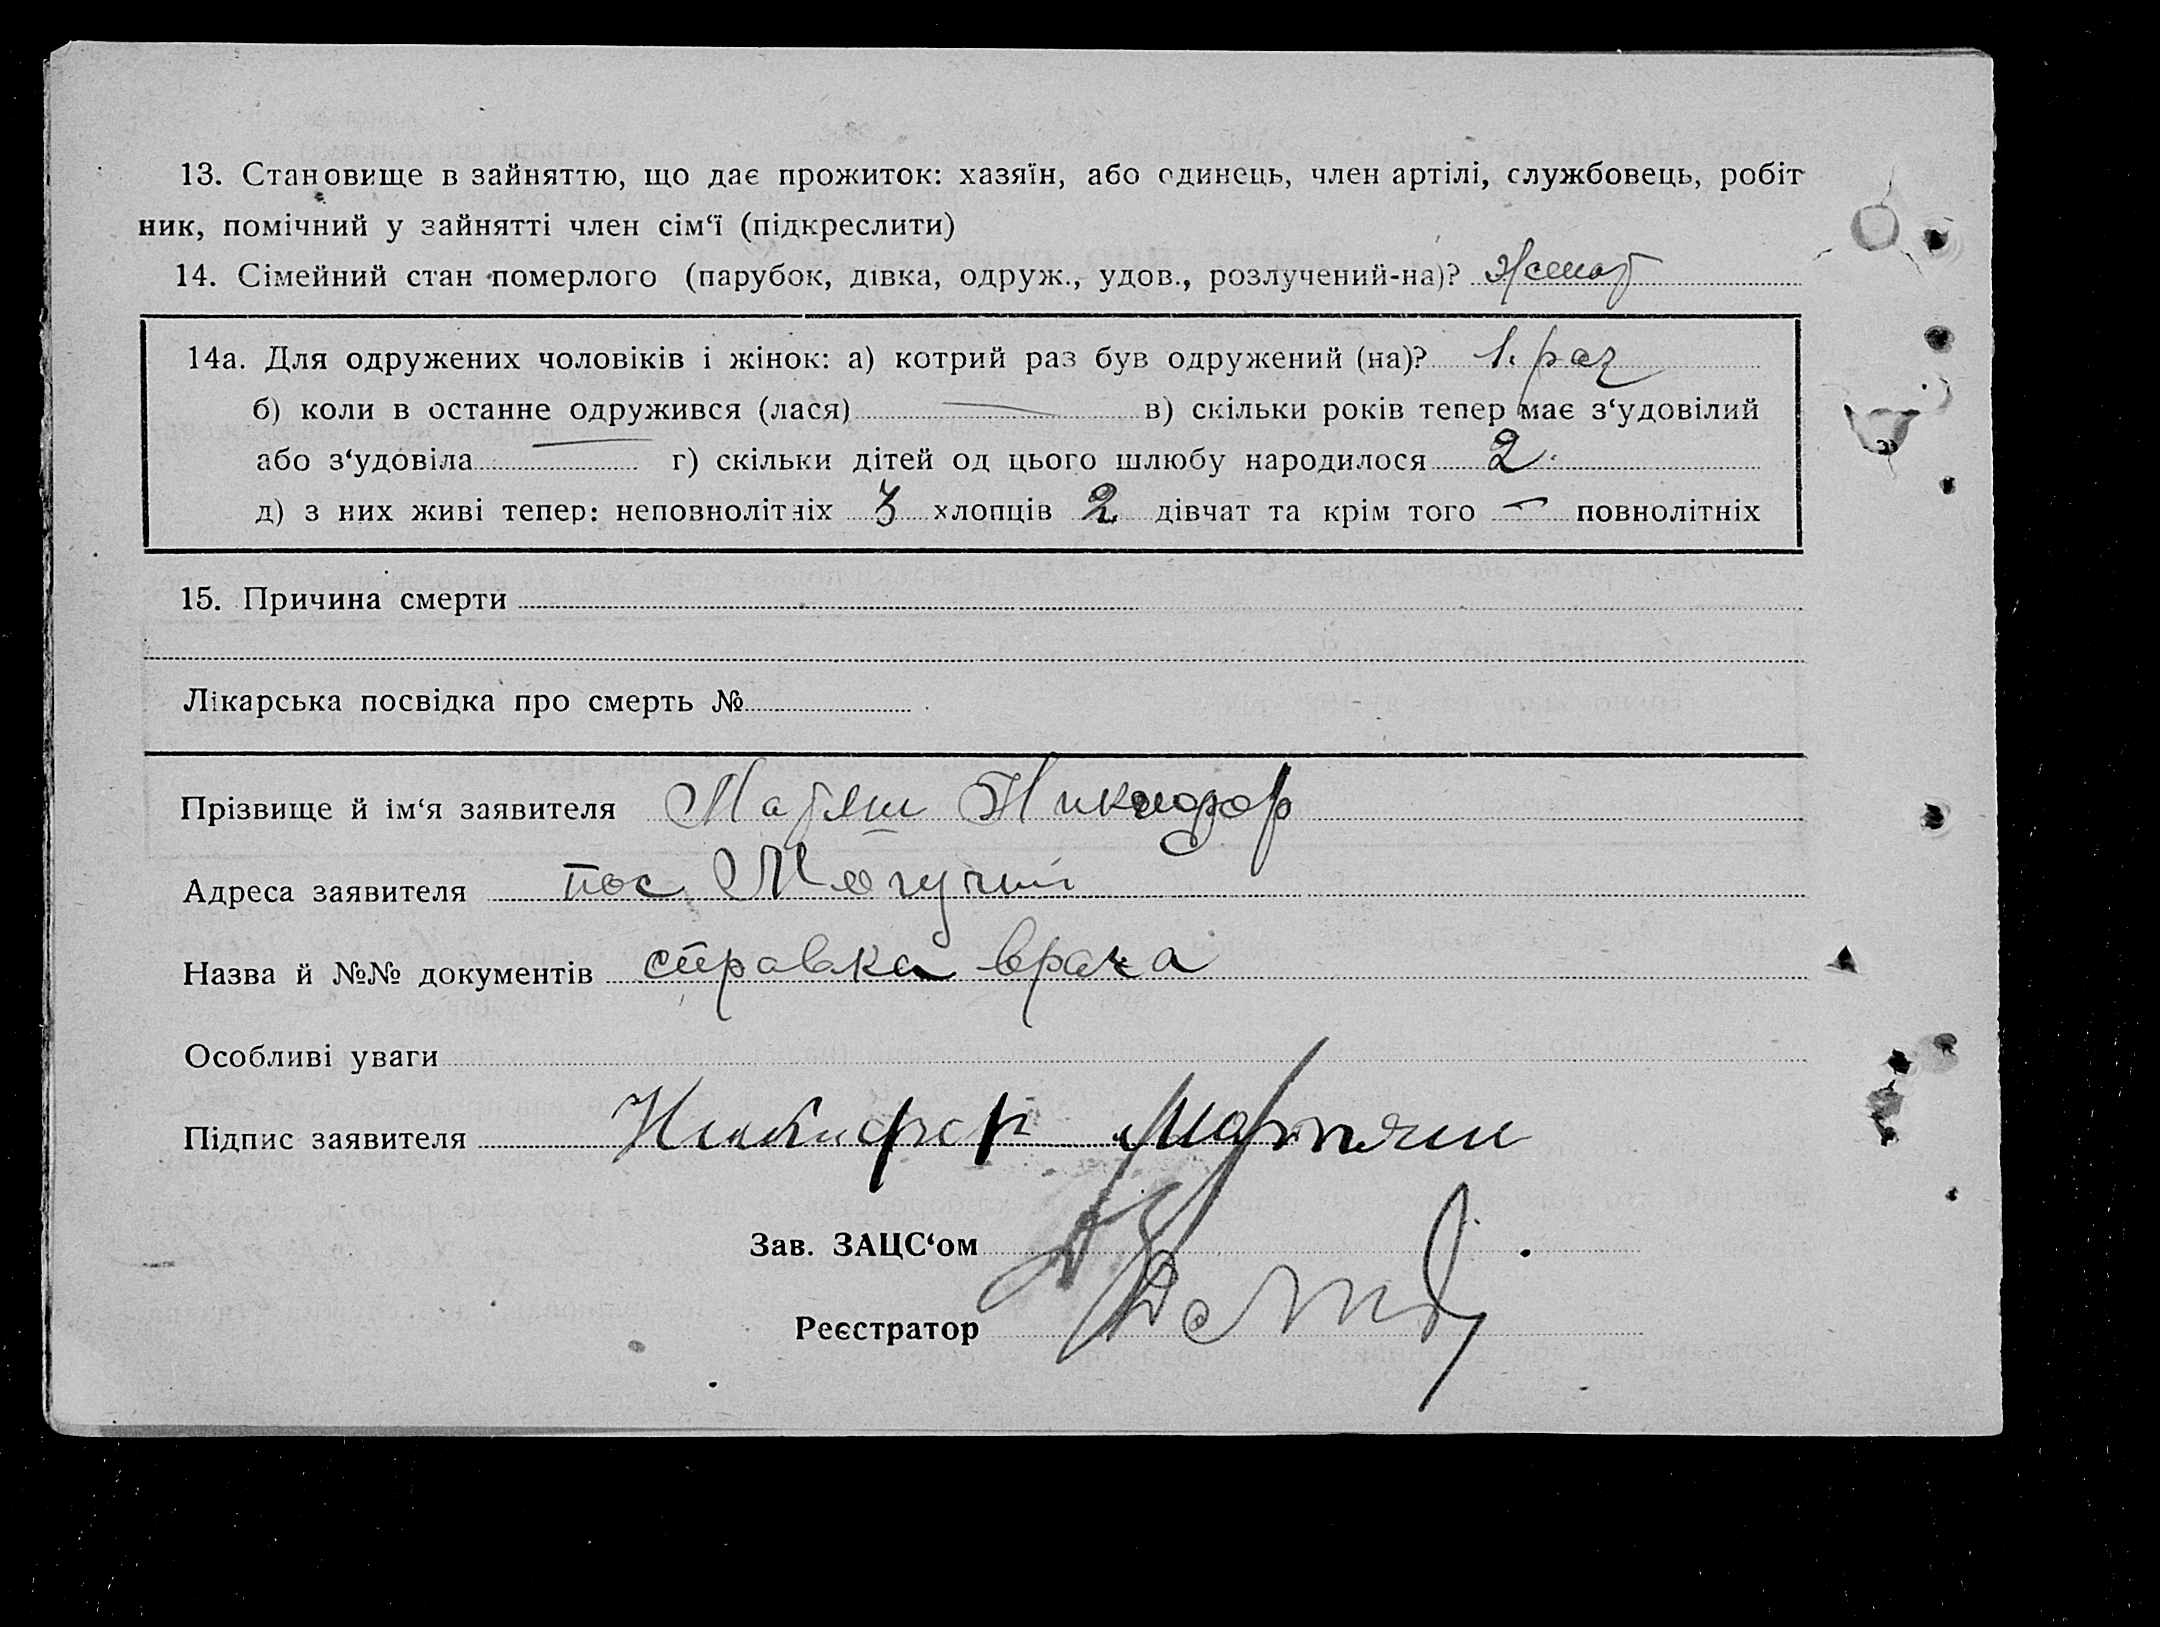 13. Становище в зайняттю, що дає прожиток: хазяїн, або одинець, член артілі, службовець, робіт
ник, помічний у зайнятті член сім‘ї (підкреслити)
14. Сімейний стан померлого (парубок, дівка, одруж., удов., розлучений-на)? Женат
14а. Для одружених чоловіків і жінок: а) котрий раз був одружений (на)? 1. раз
б) коли в останне одружився (лася) — в) скільки років тепер має з‘удовілий
або з‘удовіла — г) скільки дітей од цього шлюбу народилося 2.
д) з них живі тепер: неповнолітніх 3 хлопців 2 дівчат та крім того — повнолітніх
15. Причина смерти
Лікарська посвідка про смерть №
Прізвище й ім‘я заявителя Матяш Никифор
Адреса заявителя пос. Могучий
Назва й №№ документів справка врача
Особливі уваги
Підпис заявителя Никифор Матяш
Зав. ЗАЦС‘ом
Реєстратор